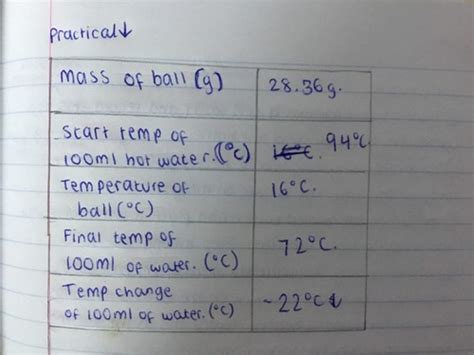 Practical↓
Mass of ball (g) 28.36g.
Start temp of
100ml hot water. (°C) 16°C. 94°C
Temperature of 16°C.
ball (°C)
Final temp of 72°C.
100ml of water. (°C)
Temp change -22°C↓
of 100ml of water. (°C)